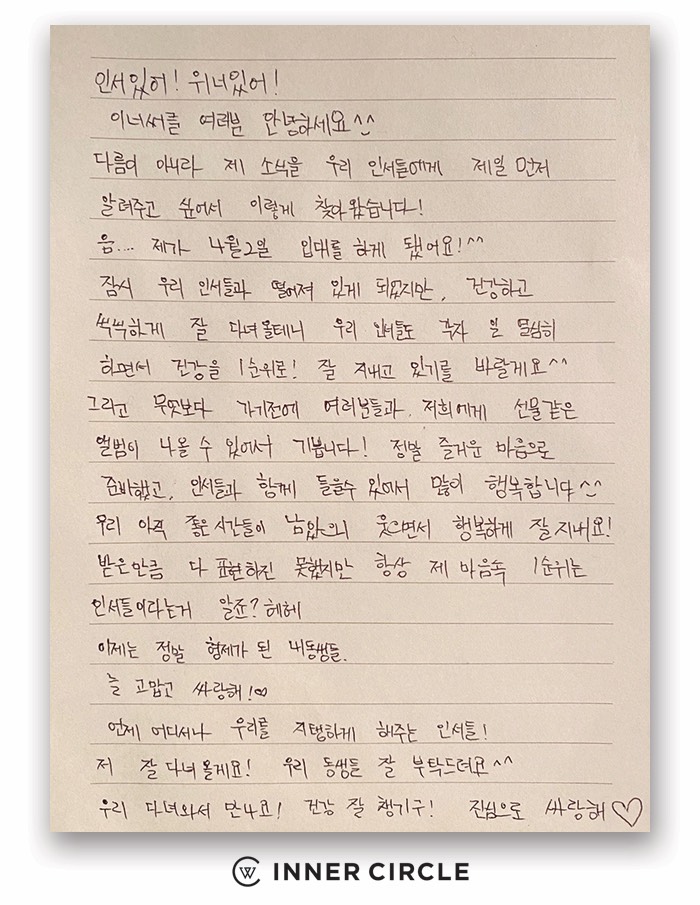 인서있어! 위너있어!
이너써클 여러분 안녕하세요^^
다름이 아니라 제 소식을 우리 인서들에게 제일 먼저
알려주고 싶어서 이렇게 찾아왔습니다!
음.... 제가 4월2일 입대를 하게 됐어요!^^
잠시 우리 인서들과 떨어져 있게 되었지만, 건강하고
씩씩하게 잘 다녀올테니 우리 인서들도 각자 일 열심히
하면서 건강을 1순위로! 잘 지내고 있기를 바랄게요^^
그리고 무엇보다 가기전에 여러분들과, 저희에게 선물같은
앨범이 나올 수 있어서 기쁩니다! 정말 즐거운 마음으로
준비했고, 인서들과 함께 들을수 있어서 많이 행복합니다^^
우리 아직 좋은 시간들이 남았으니 웃으면서 행복하게 잘지내요!
받은만큼 다 표현하진 못했지만 항상 제 마음속 1순위는
인서들이라는거 알죠? 헤헤
이제는 정말 형제가 된 내동생들.
늘 고맙고 싸랑해!∞
언제 어디서나 우리를 지탱하게 해주는 인서들!
저 잘다녀올게요! 우리 동생들 잘 부탁드려요^^
우리 다녀와서 만나요! 건강 잘 챙기구! 진심으로 싸랑해♡
W INNER CIRCLE